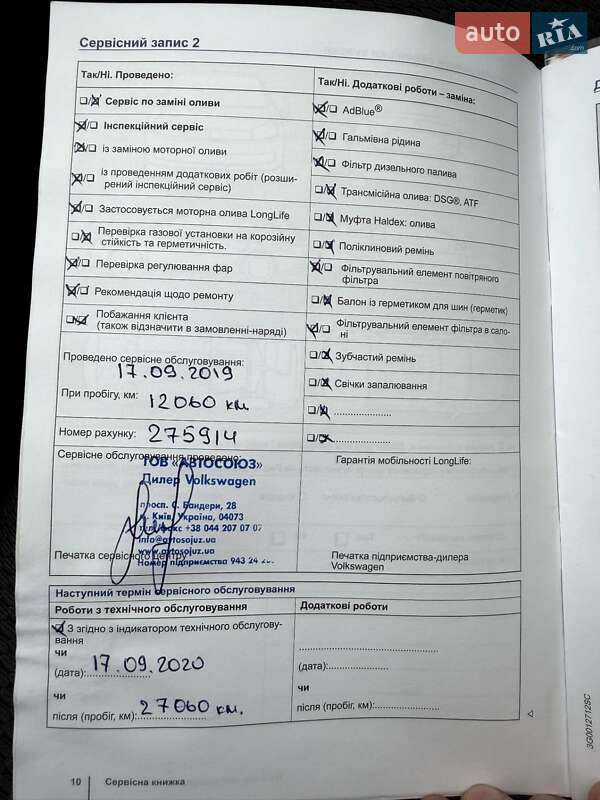 auto RIA.com
Сервісний запис 2
Так/Ні. Проведено:
☐/☒ Сервіс по заміні оливи
☒/☐ Інспекційний сервіс
☒/☐ із заміною моторної оливи
☒/☐ із проведенням додаткових робіт (розши-
рений інспекційний сервіс)
☒/☐ Застосовується моторна олива LongLife
☐/☒ Перевірка газової установки на корозійну
стійкість та герметичність.
☒/☐ Перевірка регулювання фар
☒/☐ Рекомендація щодо ремонту
☐/☒ Побажання клієнта
(також відзначити в замовленні-наряді)
Так/Ні. Додаткові роботи – заміна:
☒/☐ AdBlue®
☒/☐ Гальмівна рідина
☒/☐ Фільтр дизельного палива
☐/☒ Трансмісійна олива: DSG®, ATF
☐/☒ Муфта Haldex: олива
☐/☒ Поліклиновий ремінь
☒/☐ Фільтрувальний елемент повітряного
фільтра
☐/☒ Балон із герметиком для шин (герметик)
☒/☐ Фільтрувальний елемент фільтра в сало-
ні
☐/☒ Зубчастий ремінь
☐/☒ Свічки запалювання
☐/☒ .....................
☐/☒ .....................
Проведено сервісне обслуговування:
17.09.2019
При пробігу, км: 12060 км.
Номер рахунку: 275914
Сервісне обслуговування проведено:
ТОВ «АВТОСОЮЗ»
Дилер Volkswagen
просп. С. Бандери, 28
м. Київ, Україна, 04073
тел/факс +38 044 207 07 07
info@avtosojuz.ua
www.avtosojuz.ua
Номер підприємства 943 24
Печатка сервісного центру
Гарантія мобільності LongLife:
Печатка підприємства-дилера
Volkswagen
Наступний термін сервісного обслуговування
Роботи з технічного обслуговування
☒ З згідно з індикатором технічного обслугову-
вання
чи
(дата): 17.09.2020
чи
після (пробіг, км): 27060 км.
Додаткові роботи
(дата):.....................
чи
після (пробіг, км):.....................
10 Сервісна книжка
3G0012712SC